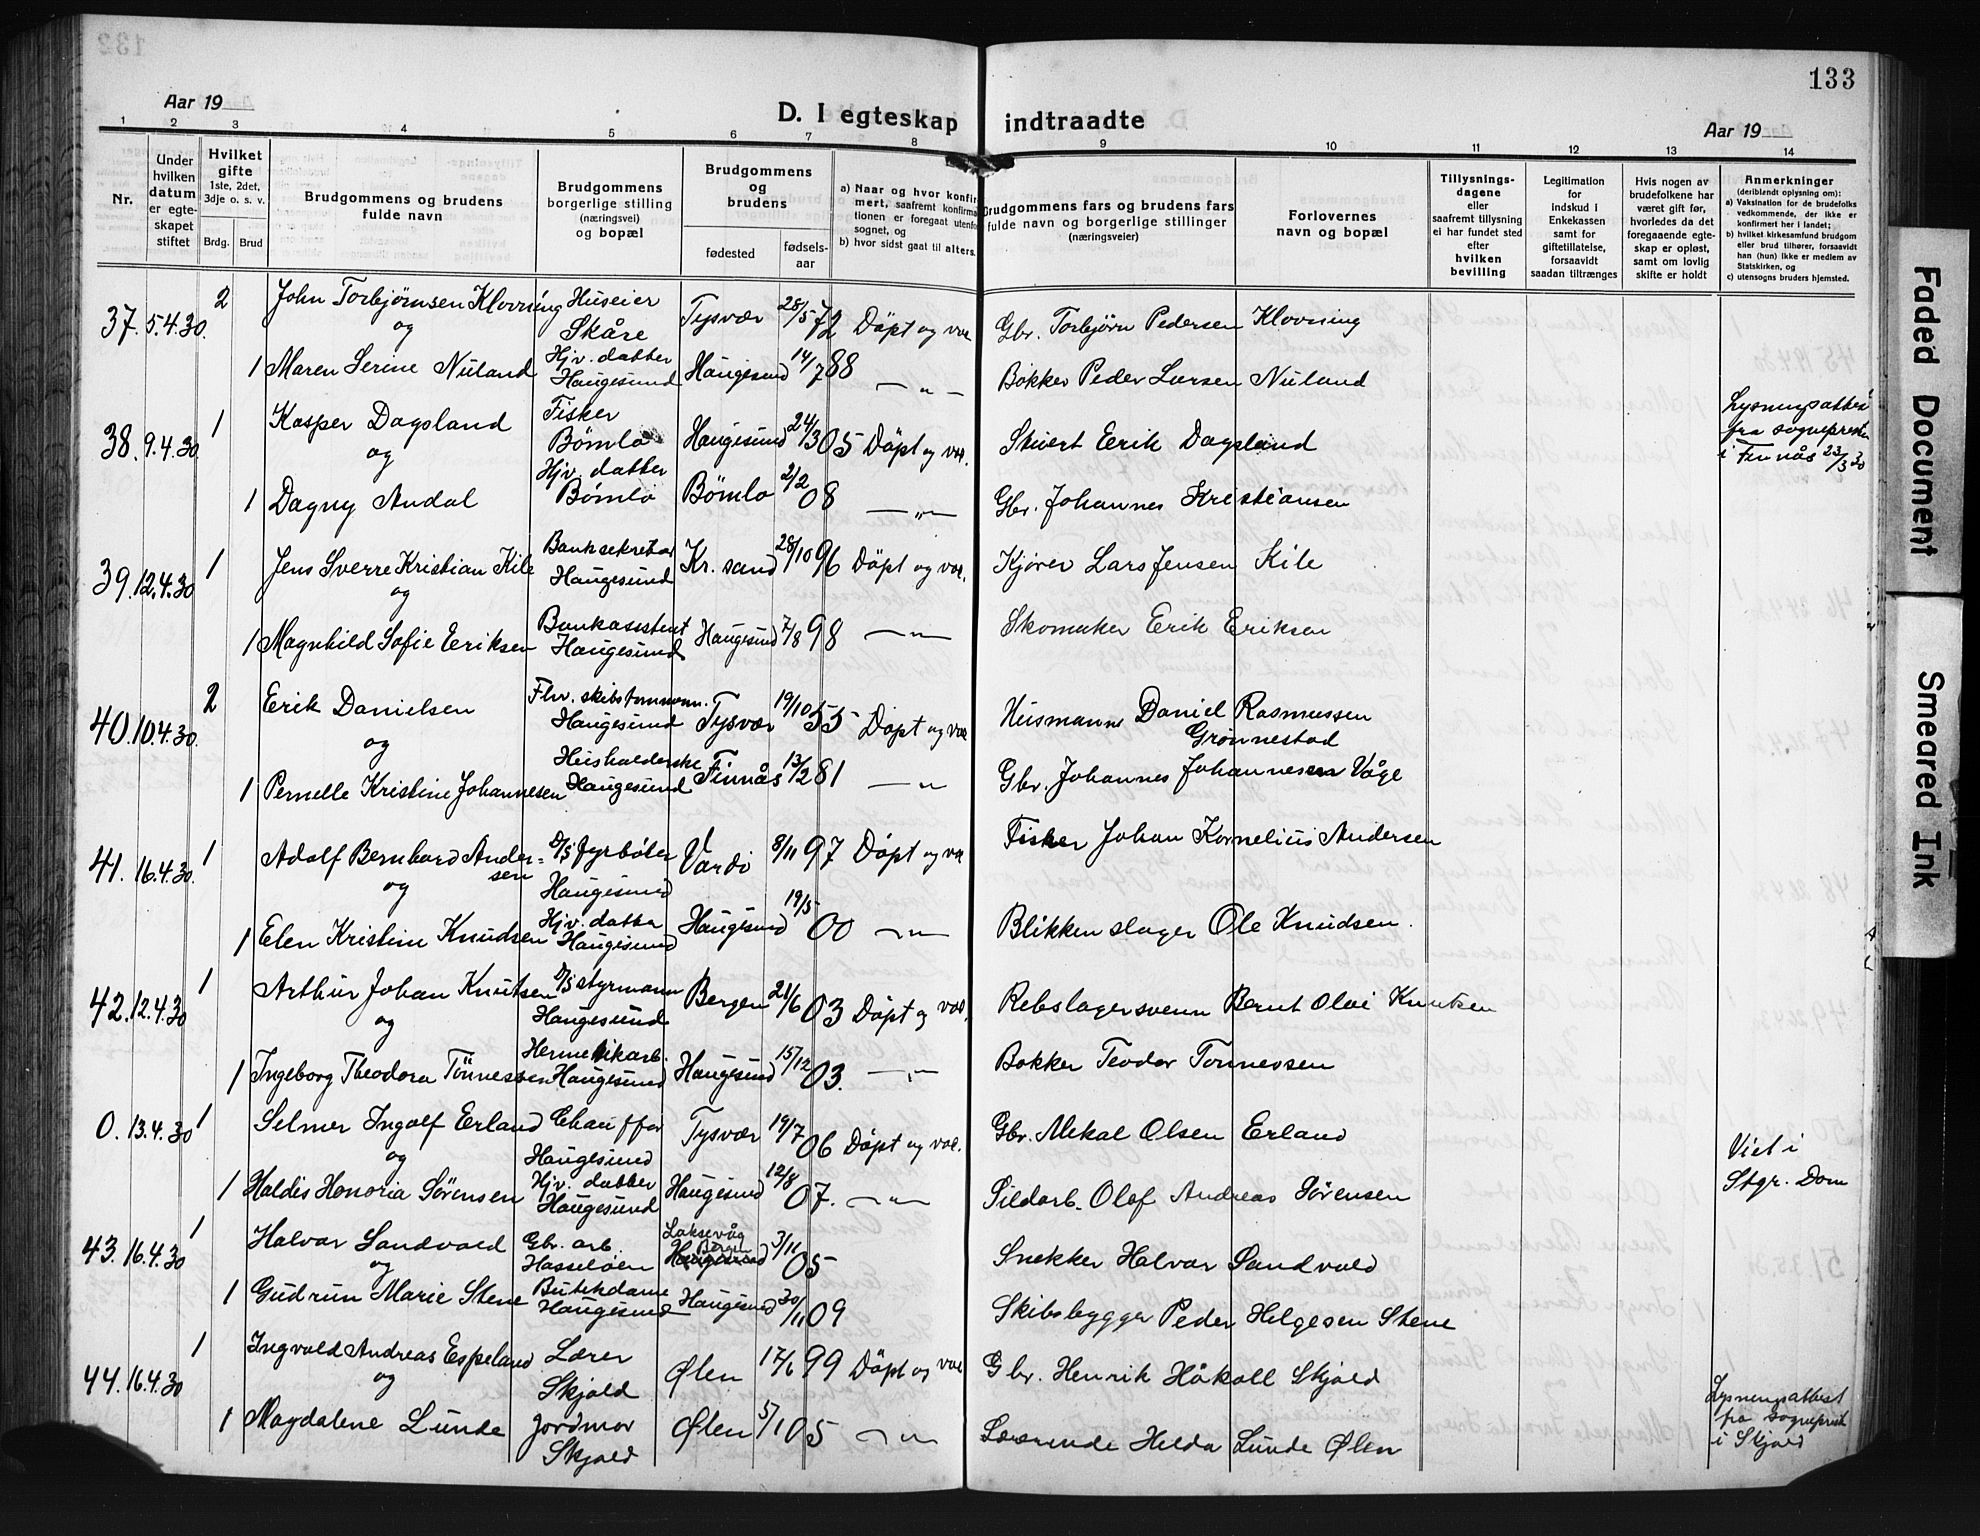 133
Aar 19
D. I egteskap indtraadte
Aar 19
1 2 3 4 5 6 7 8 9 10 11 12 13 14
Nr.
Under hvilken datum er egte-skapet stiftet
Hvilket gifte 1ste, 2det, 3dje o. s. v.
Brdg. Brud
Brudgommens og brudens fulde navn
Brudgommens borgerlige stilling (næringsvei) og bopæl
Brudgommens og brudens
fødested
fødsels-aar
a) Naar og hvor konfir
mert, saafremt konfirma
tionen er foregaat utenfo
sognet, og
b) hvor sidst gaat til alters.
Brudgommens fars og brudens fars fulde navn og borgerlige stillinger (næringsveier)
Forlovernes navn og bopæl
Tillysnings-dagene eller saafremt tillysning ei har fundet sted efter hvilken bevilling
Legitimation for indskud i Enkekassen samt for giftetillatelse, forsaavidt saadan tiltrænges
Hvis nogen av brudefolkene har været gift før, hvorledes da det foregaaende egte-skap er opløst, samt om lovlig skifte er holdt
Anmerkninger
(deriblandt oplysning om):
a) Vaksination for de brudefolks vedkommende, der ikke er konfirmert her i landet;
b) hvilket kirkesamfund brudgom eller brud tilhører, forsaavidt han (hun) ikke er medlem av Statskirken, og
c) utensogns bruders hjemsted.
37. 5.4.30. 2 John Torbjørnsen Klovning Huseier Skåre Tysvær 28/5 72 Döpt og vac Gbr. Torbjørn Pedersen Klovning
og
1 Maren Serine Nuland Hjv. datter Haugesund Haugesund 14/7 88 — " — Bøkker Peder Larsen Nuland
38. 9.4.30. 1 Kasper Dagsland Fisker Bömlo Haugesund 24/3 05 Döpt og vac. Skuert Eerik Dagsland
Lysningsattest fra sogneprest i Finnås 23/3 30
og
1 Dagny Andal Hjv. datter Bömlo Bömlo 2/2 08 — " — Gbr. Johannes Kristiansen
39. 12.4.30 1 Jens Sverre Kristian Kile Banksekretær Haugesund Kr. sand 28/10 96 Döpt og vac. Kjörer Lars Jensen Kile
og
1 Magnhild Sofie Eeriksen Bankassistent Haugesund Haugesund 7/8 98 — " — Skomaker Erik Eriksen
40. 10.4.30. 2 Erik Danielsen Fhv. skibstømmerm. Haugesund Tysvær 19/10 55 Döpt og vac Husmann Daniel Rasmussen Grönnestad
og
1 Pernelle Kristine Johannesen Husholderske Haugesund Finnås 13/2 81 — " Gbr. Johannes Johannesen Våge
41. 16.4.30. 1 Adolf Bernhard Ander-sen D/S fyrböter Haugesund Vardö 8/11 97 Döpt og va Fisker Johan Kornelius Andersen
og
1 Elen Kristine Knudsen Hjv. datter Haugesund Haugesund 19/5 00 — " — Blikkenslager Ole Knudsen.
42. 12.4.30 1 Arthur Johan Knutsen D/S styrmann Haugesund Bergen 21/6 03 Döpt og vac. Rebslagersvenn Bernt Olai Knutsen
og
1 Ingeborg Theodora Tönnessen Hermetikarb. Haugesund Haugesund 15/12 03. — " — Bøkker Teodor Tonnessen
0. 13.4.30 1 Selmer Ingolf Erland Chauffør Haugesund Tysvær 19/7 06 Döpt og vac. Gbr. Mekal Olsen Erland
Viet i Stgr. Dom
og
1 Haldis Honoria Sørensen Hjv. datter Haugesund Haugesund 12/8 07. — " — Sildarb. Olof Andreas Sørensen
43. 16.4.30 1 Halvar Sandvold Gbr. arb. Hasseløen Laksevåg Bergen Haugesund 3/11 05 Snekker Halvar Sandvold
og
1 Gudrun Marie Stene Butikdame Haugesund Haugesund 30/11 09 Skibsbygger Peder Helgesen Stene
44. 16.4.30 1 Ingvald Andreas Espeland Lærer Skjold Ølen 17/6 99 Döpt og vac Gbr. Henrik Håkoll Skjold
og
1 Magdalene Lunde Jordmor Skjold Ølen 5/1 05 — " — Lærerinde Helda Lunde Ølen
Lysningsattest fra sogneprest i Skjold
Faded Document
Smeared Ink